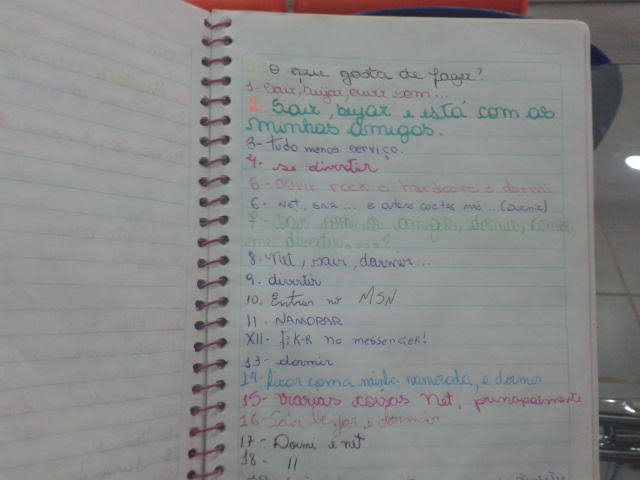 O que gosta de fazer?
1- Sair, beijar, curir som...
2- Sair, bejar e está com as
minhas amigas.
3- tudo menos serviço.
4- se divertir
5- ouvir rock e hardcore e dormir
6- Net, sair ... e outras coitas mas... (Dormir)
7- Sair com os amigos, dormir, comer,
me divertir....
8- Net, sair, dormir...
9. divertir
10. Entrar no MSN
11- NAMORAR
XII- FiK-R no messenger!
13- dormir
14- ficar com a minha namorada, e dormir
15- varias coisas Net, principalmente
16- Sair be jar, e dormir
17- Dormi e net
18- 11